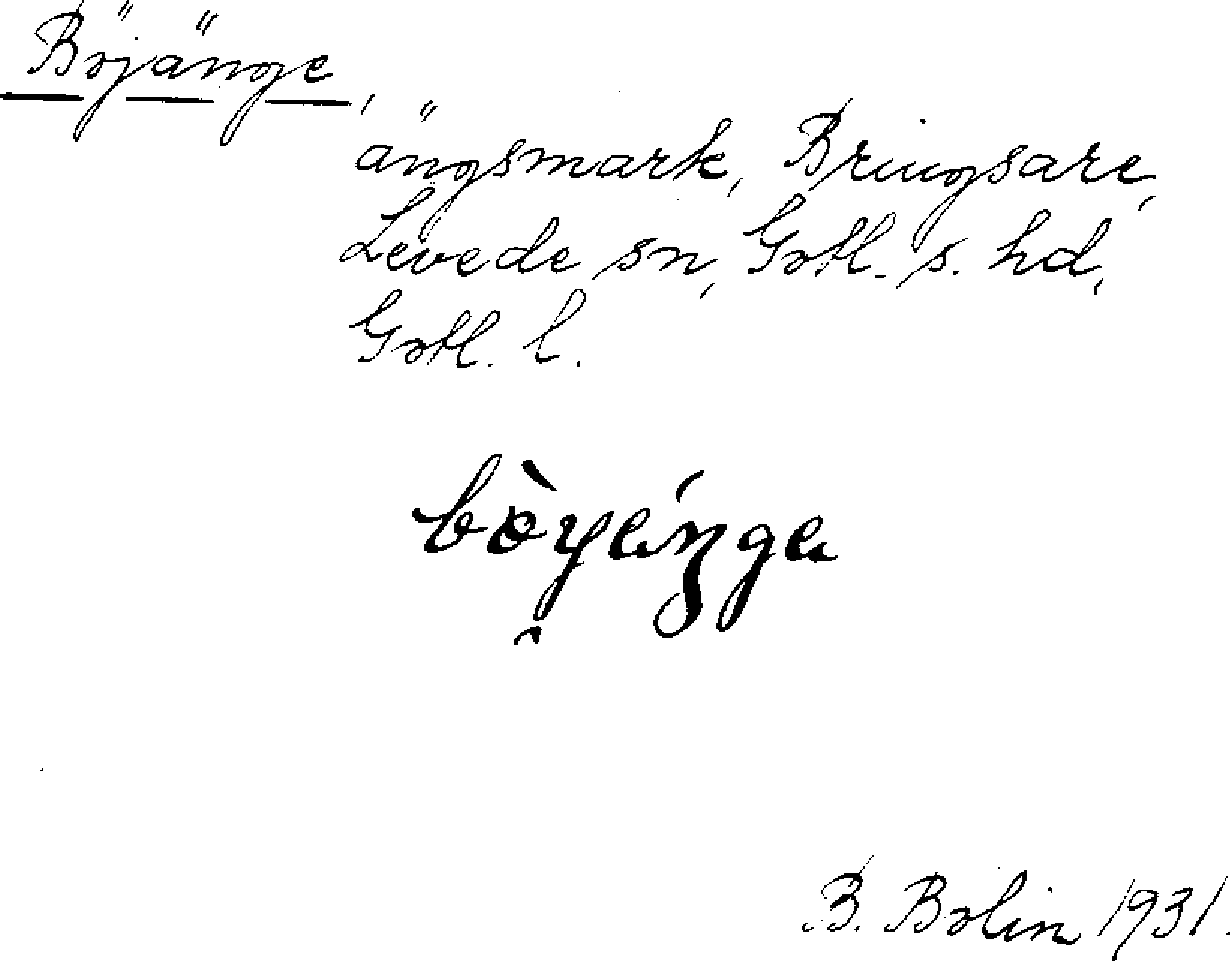 Böjänge,
ängsmark, Bringsare,
Levede sn, Gotl. s. hd,
Gotl. l.
B. Bolin 1931.